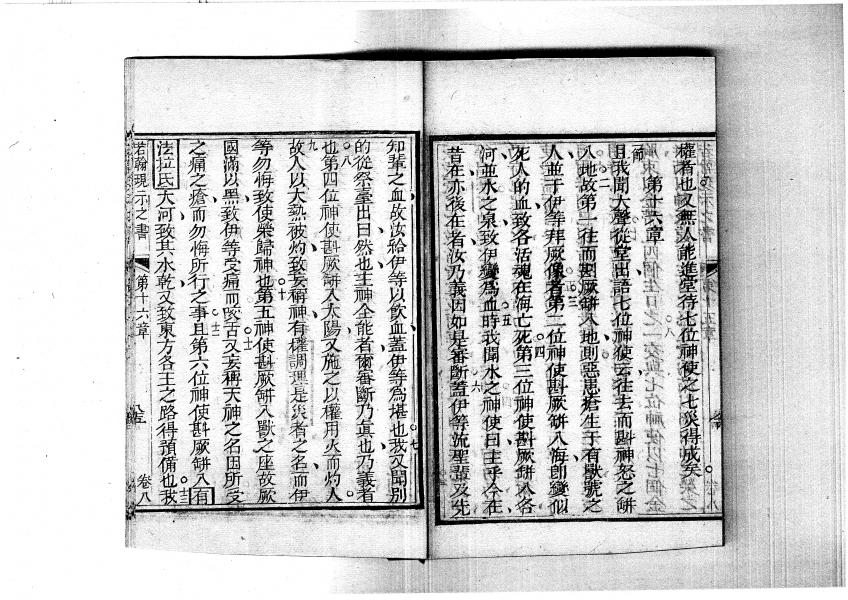 權者也又無人能進堂待七位神使之七災得成矣
第十六章
且我聞大聲從堂出語七位神使云往去而斟神怒之缾
入地故第一往而斟厥缾入地則惡患瘡生于有獸號之
人並于伊等拜厥像者第二位神使斟厥缾入海即變似
死人的血致各活魂在海亡死第三位神使斟厥缾入各
河並水之泉致伊變為血時我聞水之神使曰主乎今在
昔在亦後在者汝乃義因如是審斷蓋伊等流聖輩及先
知輩之血故汝給伊等以飲血蓋伊等為堪也我又聞別
的從祭臺出曰然也主神全能者爾審斷乃真也乃義者
也第四位神使斟厥缾入太陽又施之以權用火而灼人
故人以大熱被灼致妄稱神有權調理是災者之名而伊
等勿悔致使榮歸神也第五神使斟厥缾入獸之座故厥
國滿以黑致伊等受痛而咬舌又妄稱天神之名因所受
之痛之瘡而勿悔所行之事且第六位神使斟厥缾入有
法拉氐大河致其水乾又致東方各王之路得預備也我
若翰現示之書 第十六章 卷八